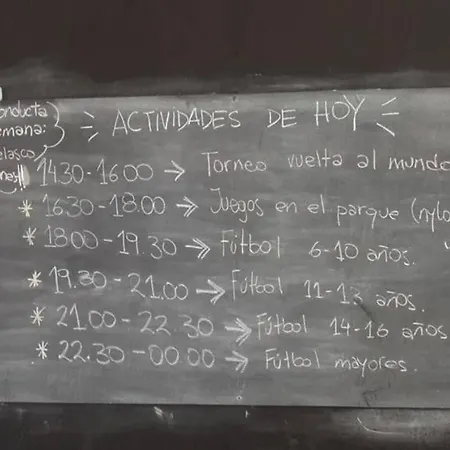 onducta
emana:
elasco
nes!!
ACTIVIDADES DE HOY
14.30-16.00 → Torneo vuelta al mundo
* 16.30-18.00 → Juegos en el parque (nylo
* 18.00-19.30 → Fútbol 6-10 años.
* 19.30-21.00 → Fútbol 11-13 años.
* 21.00-22.30 → Fútbol 14-16 años
* 22.30-00.00 → Fútbol mayores.